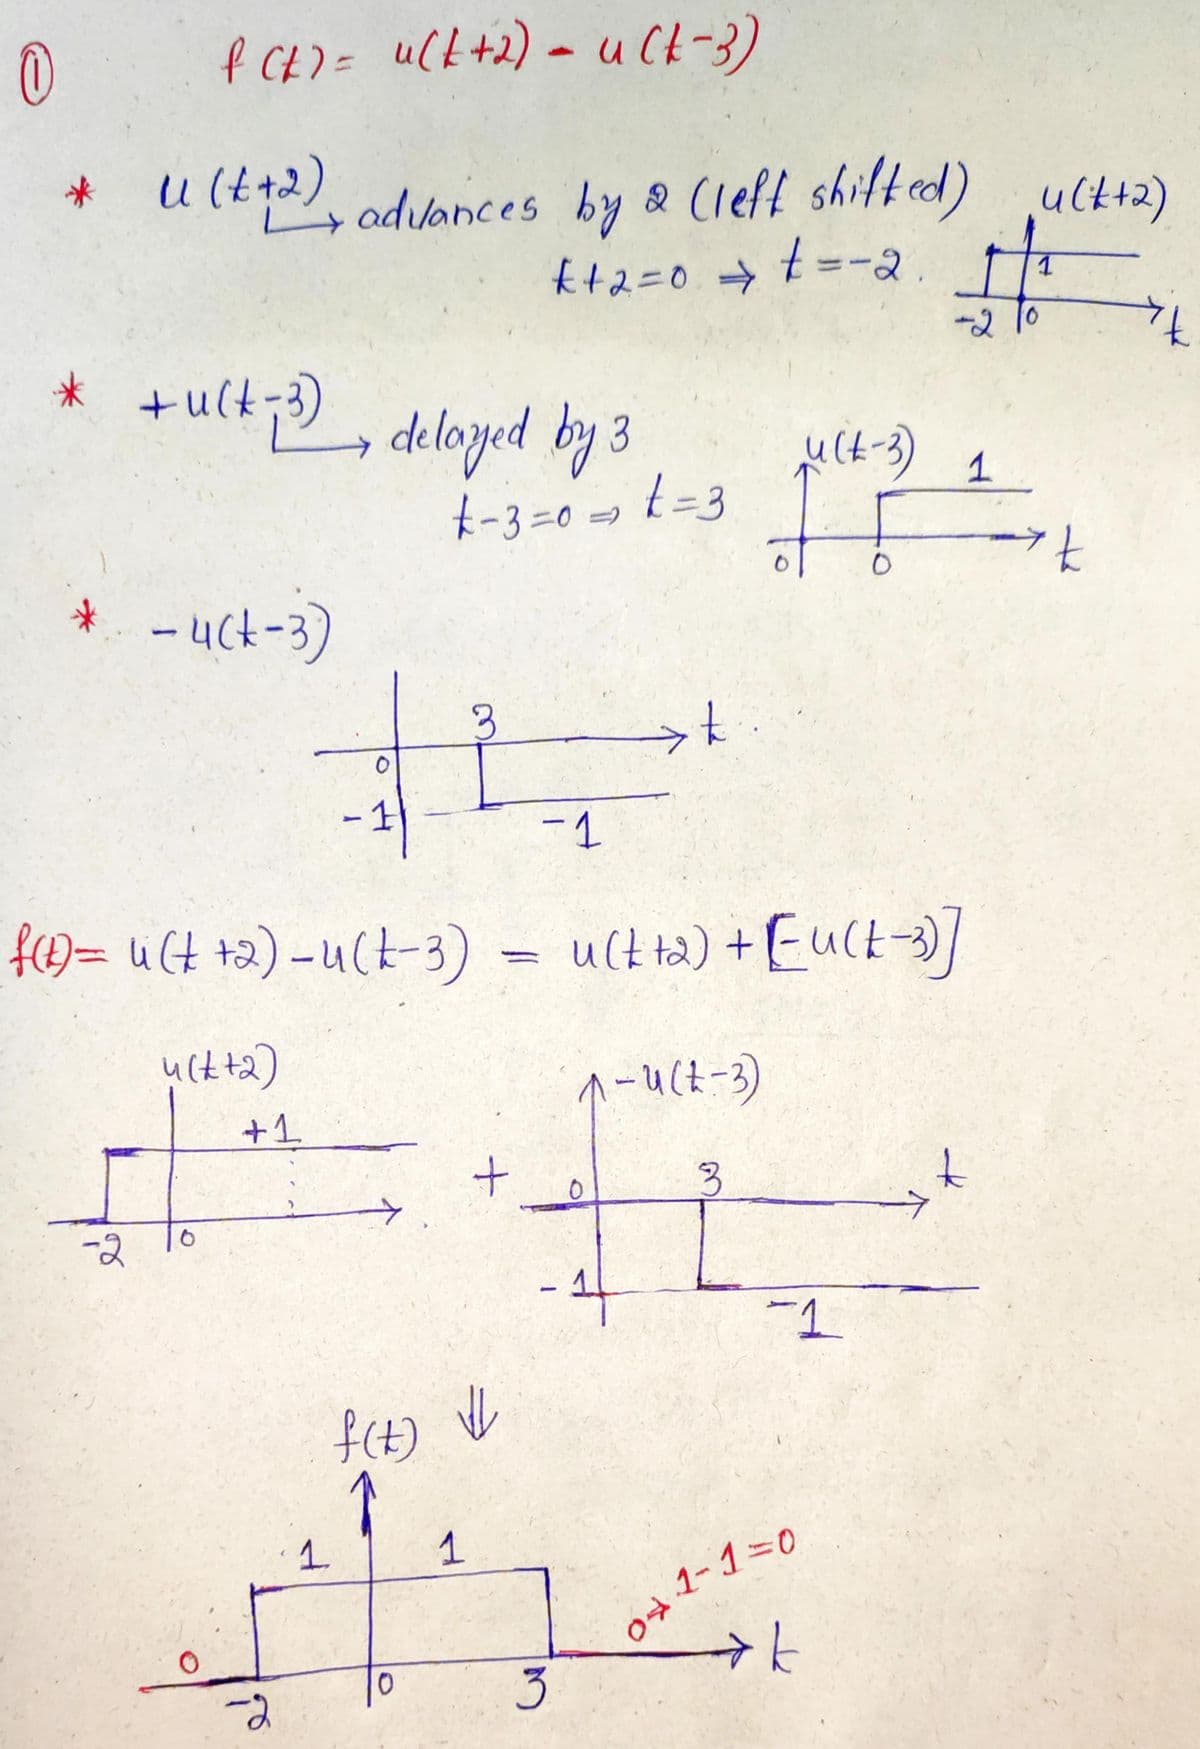 ① f(t) = u(t+2) - u(t-3)
* u(t+2) ↳ advances by 2 (left shifted) u(t+2)
t+2=0 ⇒ t=-2. 1
-2 0 t
* +u(t-3) ↳ delayed by 3 u(t-3) 1
t-3=0 ⇒ t=3
0 0 t
* -u(t-3)
3 t
0
-1 -1
f(t)= u(t+2) -u(t-3) = u(t+2) + [-u(t-3)]
u(t+2) -u(t-3)
+1
+ 0 3 t
-2 0
-1 -1
f(t) ⇓
1 1 0→ 1-1=0
0 t
-2 0 3